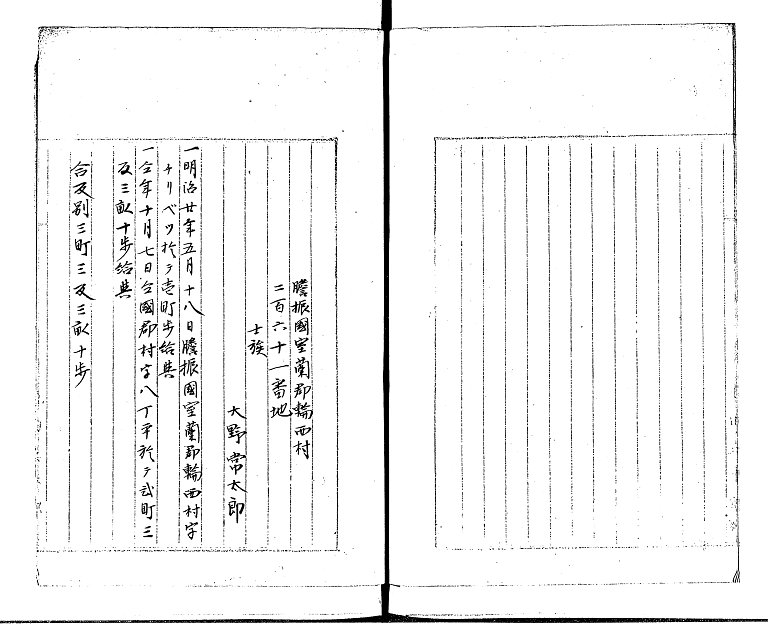 膽振國室蘭郡輪西村
二百六十一番地
士族
大野常太郎
一明治廿年五月十八日膽振國室蘭郡輪西村字
チリベツ於テ壱町歩給與
一仝年十月七日仝國郡村字八丁平於テ弐町三
反三畝十歩給與
合反別三町三反三畝十歩